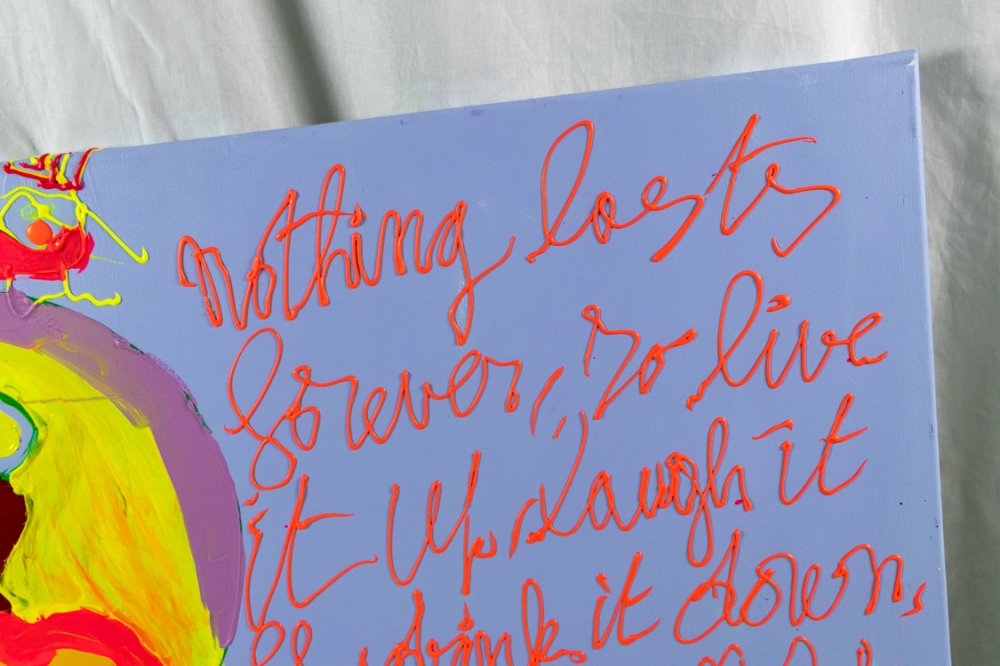 Nothing lasts
forever, so live
it up, laugh it
drink it down,